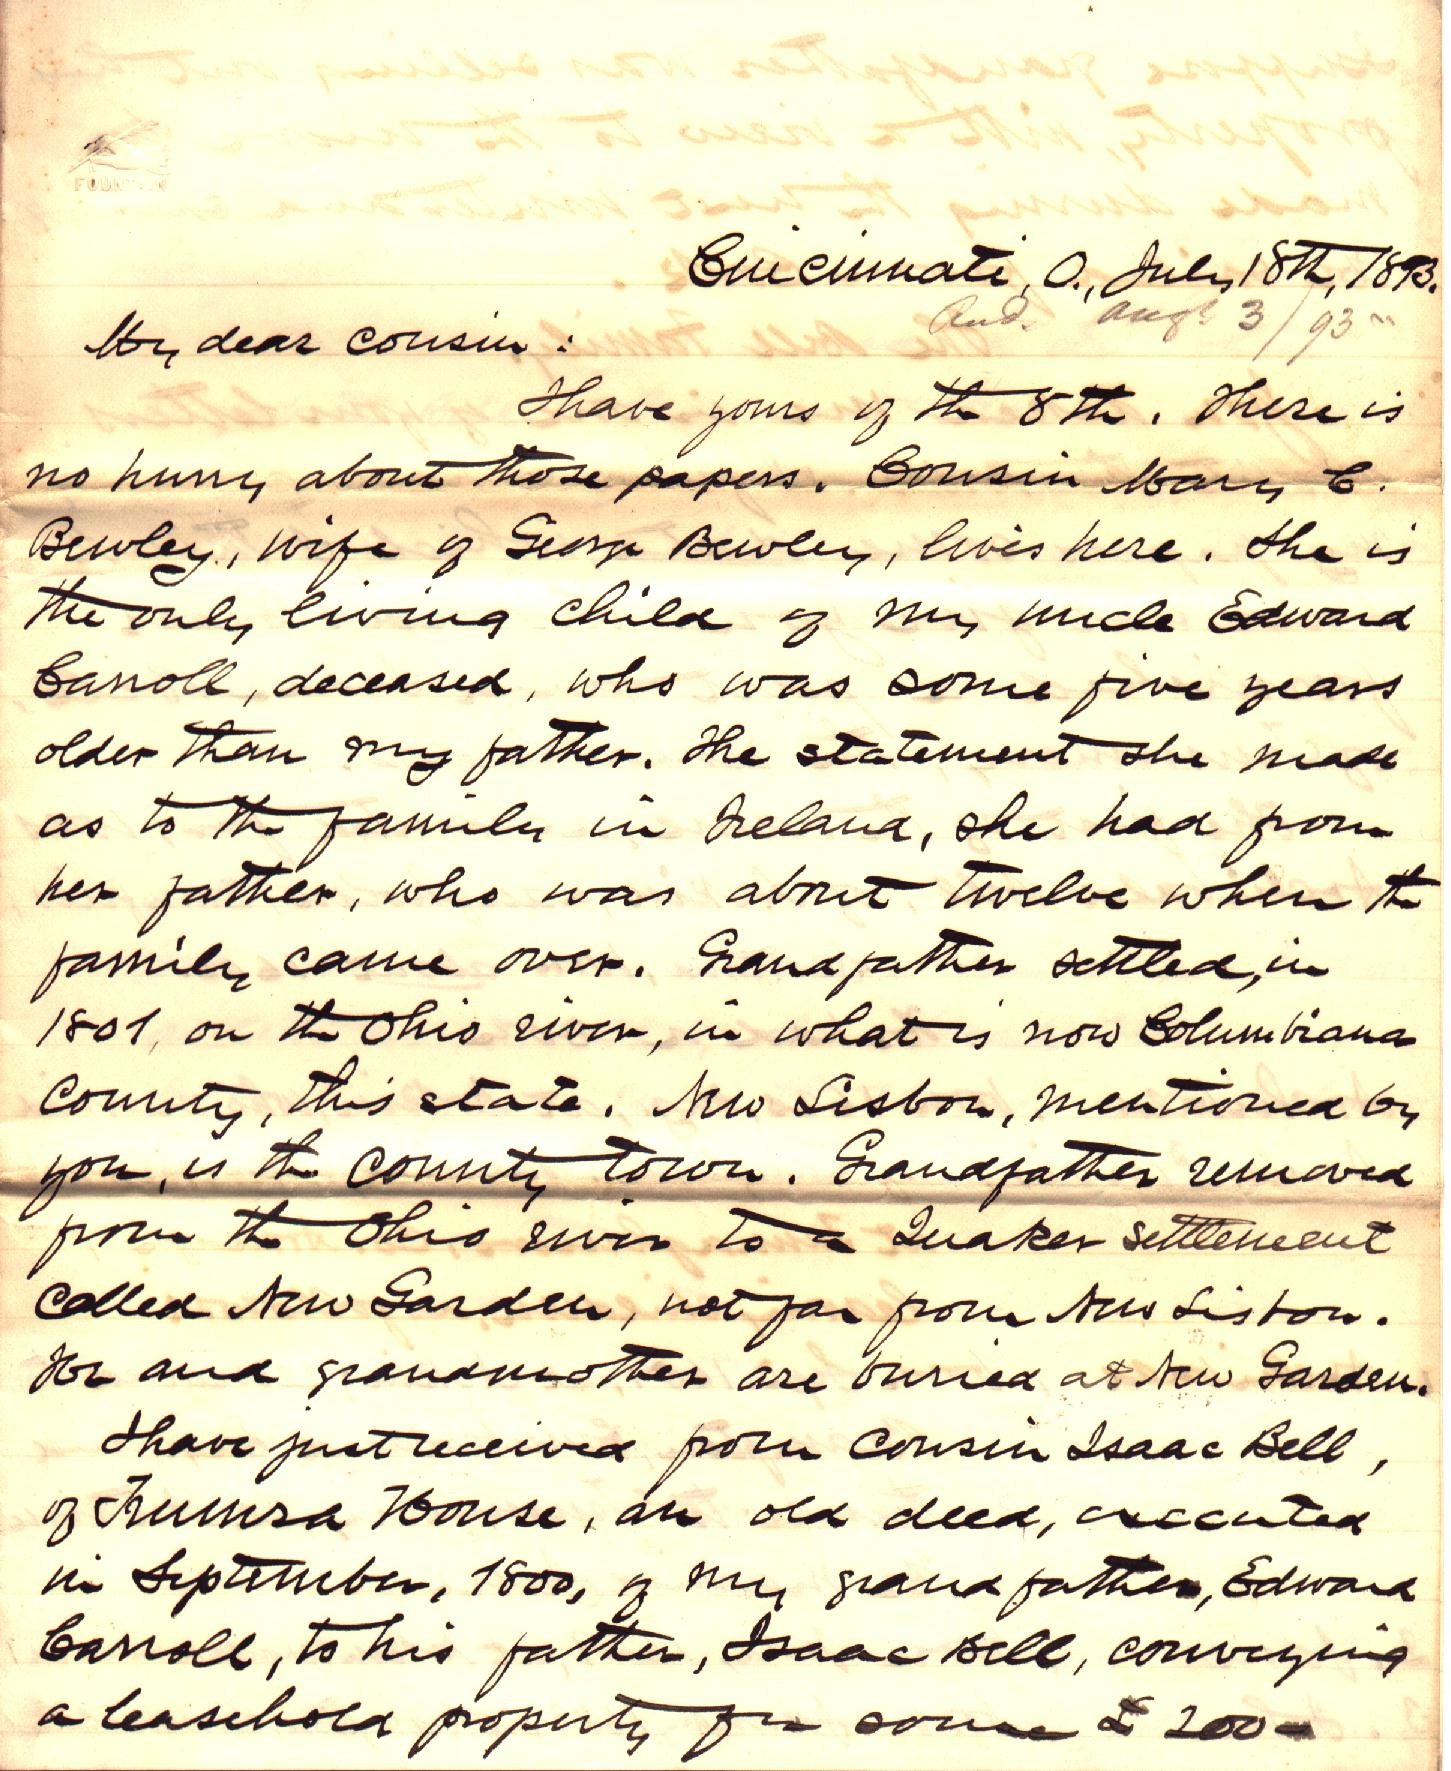 FOUNTAIN
Cincinnati, O., July 18th, 1893.
Recd. Augt 3/93
My dear cousin:
I have yours of the 8th. There is
no hurry about those papers. Cousin Mary C.
Bewley, wife of George Bewley, lives here. She is
the only living child of my uncle Edward
Carroll, deceased, who was some five years
older than my father. The statement she made
as to the family in Ireland, she had from
her father, who was about twelve when the
family came over. Grandfather settled, in
1801, on the Ohio river, in what is now Columbiana
County, this state. New Lisbon, mentioned by
you, is the county town. Grandfather removed
from the Ohio river to a Quaker settlement
called New Garden, not far from New Lisbon.
He and grandmother are buried at New Garden.
I have just received from cousin Isaac Bell,
of House, an old deed, executed
in September, 1800, of my grandfather, Edward
Carroll, to his father, Isaac Bell, conveying
a leasehold property for some £200